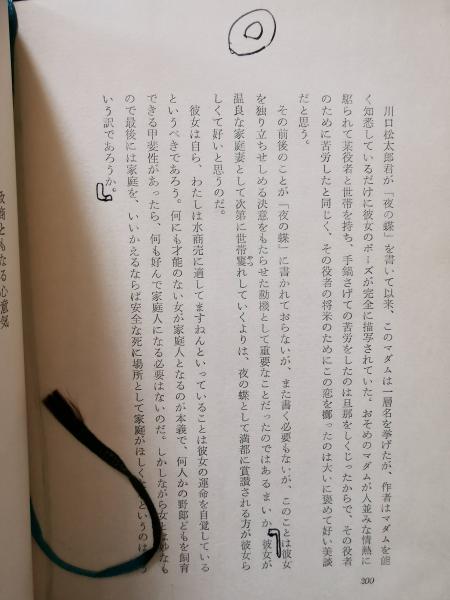 川口松太郎君が「夜の蝶」を書いて以来、このマダムは一層名を挙げたが、作者はマダムを能
く知悉しているだけに彼女のポーズが完全に描写されていた。おそめのマダムが人並みな情熱に
駆られて某役者と世帯を持ち、手鍋さげての苦労をしたのは旦那をしくじったからで、その役者
のために苦労したと同じく、その役者の将来のためにこの恋を擲ったのは大いに褒めて好い美談
だと思う。
その前後のことが「夜の蝶」に書かれておらないが、また書く必要もないが、このことは彼女
を独り立ちせしめる決意をもたらせた動機として重要なことだったのではあるまいか。彼女が
温良な家庭妻として次第に世帯窶れしていくよりは、夜の蝶として満都に賞讃される方が彼女ら
しくて好いと思うのだ。
彼女は自ら、わたしは水商売に適してますねんといっていることは彼女の運命を自覚している
というべきであろう。何にも才能のない女が家庭人となるのが本義で、何人かの野郎どもを飼育
できる甲斐性があったら、何も好んで家庭人になる必要はないのだ。しかしながら女とは妙なも
ので最後には家庭を、いいかえるならば安全な死に場所として家庭がほしく
という
いう訳であろうか。
200
ともなる心意気